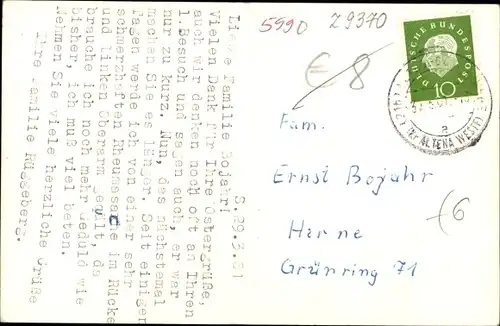 S.29.3.61
Liebe Familie Bojahr!
Vielen Dank für Ihre Ostergrüße,
auch wir denken noch oft an Ihren
1. Besuch und sagen auch, er war
nur zu kurz. Nun, das nächstemal
machen Sie es länger. Seit einigen
Tagen werde ich von einer sehr
schmerzhaften Rheumasache im Rücken
und linken Oberarm geqält, da
brauche ich noch mehr Geduld wie
bisher, ich muß viel beten.
Nehmen Sie viele herzliche Grüße
Ihre Familie Rüggeberg.
5990
29370
€ 8
DEUTSCHE BUNDESPOST
10
a
ALTENA WESTF
Fam.
Ernst Bojahr
Herne
Grünring 71
(6